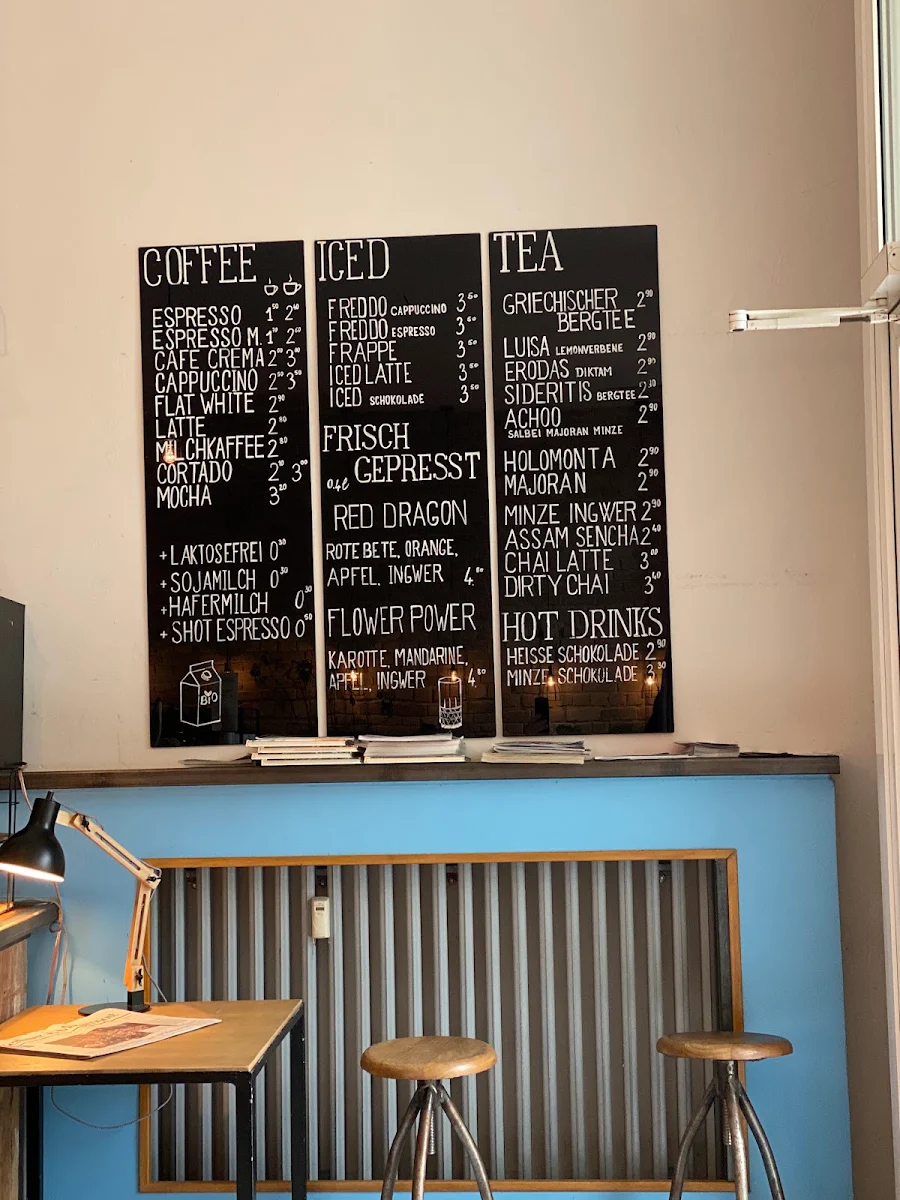 COFFEE
ESPRESSO 1⁵⁰ 2⁴⁰
ESPRESSO M. 2⁶⁰
CAFE CREMA
CAPPUCCINO 2⁵⁰ 3⁵⁰
FLAT WHITE 2⁹⁰
LATTE 2⁸⁰
MILCHKAFFEE 2⁸⁰
CORTADO
MOCHA 3²⁰
+ LAKTOSEFREI 0³⁰
+ SOJAMILCH 0³⁰
+ HAFERMILCH 0³⁰
+ SHOT ESPRESSO 0⁵⁰
BIO
ICED
FREDDO CAPPUCCINO 3⁵⁰
FREDDO ESPRESSO 3⁵⁰
FRAPPE 3⁵⁰
ICED LATTE 3⁵⁰
ICED SCHOKOLADE 3⁵⁰
FRISCH
0.4ℓ GEPRESST
RED DRAGON
ROTE BETE, ORANGE,
APFEL, INGWER 4.⁸⁰
FLOWER POWER
KAROTTE, MANDARINE,
APFEL, INGWER 4.⁸⁰
TEA
GRIECHISCHER 2⁹⁰
BERGTEE
LUISA LEMONVERBENE 2⁹⁰
ERODAS DIKTAM 2⁹⁰
SIDERITIS BERGTEE
ACHOO 2⁹⁰
SALBEI MAJORAN MINZE
HOLOMONTA 2⁹⁰
MAJORAN 2⁹⁰
MINZE INGWER 2⁹⁰
ASSAM SENCHA 2⁴⁰
CHAI LATTE 3⁰⁰
DIRTY CHAI 3⁴⁰
HOT DRINKS
HEISSE SCHOKOLADE 2⁹⁰
MINZE SCHOKOLADE 3³⁰